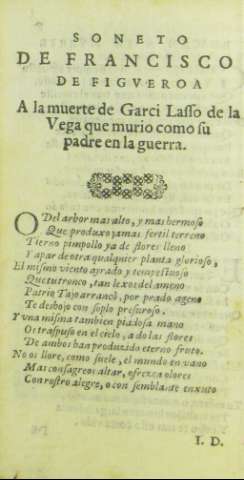 SONETO
DE FRANCISCO
DE FIGVEROA
A la muerte de Garci Lasso de la
Vega que murio como su
padre en la guerra.
O Del arbor mas alto, y mas hermoso
Que produxo jamas fertil terreno
Tierno pimpollo ya de flores lleno
Y a par de otra qualquier planta glorioso,
El mismo viento ayrado y tempestuoso
Que tu tronco, tan lexos del ameno
Patrio Tajo arrancò, por prado ageno
Te deshojo con soplo presuroso.
Y una misma tambien piadosa mano
Os traspuso en el cielo, a do las flores
De ambos han produzido eterno fruto.
No os llore, como suele, el mundo en vano
Mas consagreos altar, ofrezca olores
Con rostro alegre, o con semblante enxuto
I. D.